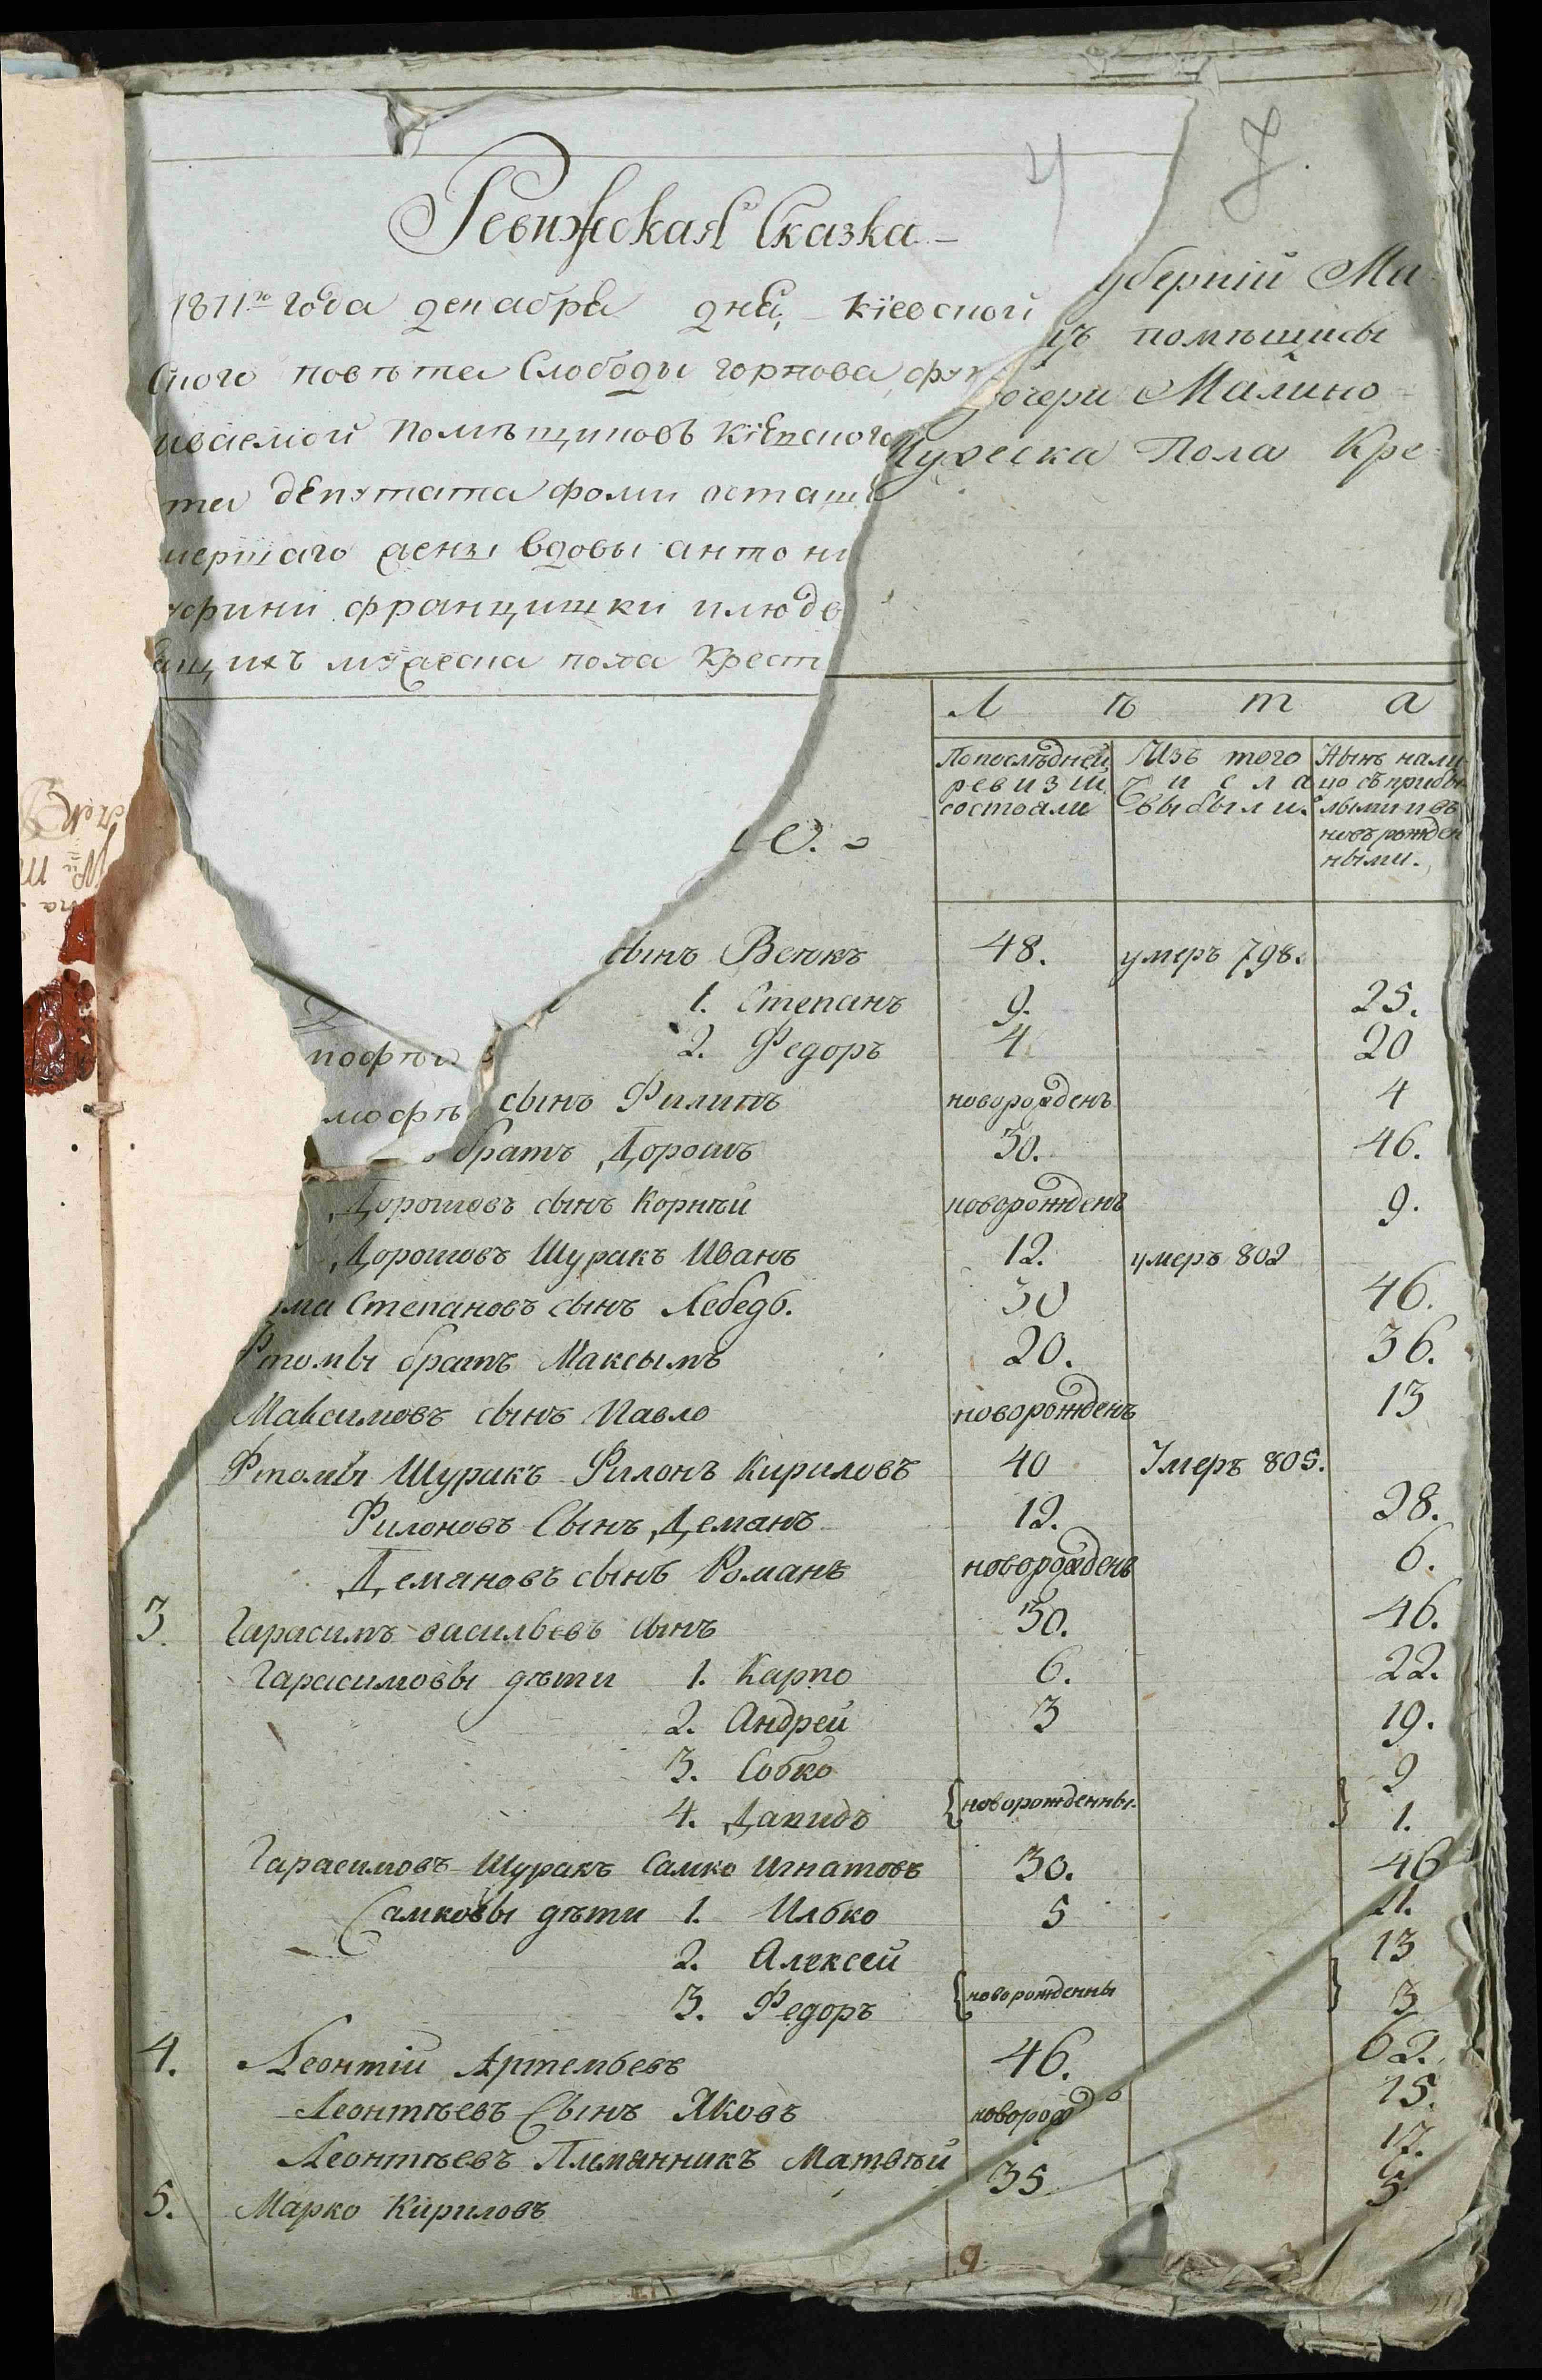 4 8.
Ревижская Сказка
1811го года декабря дня Кіевской
уберній Ма
ского повѣта Слободы горнова
помѣщицы
иваемой помѣщиковъ Кіевского
очери Малино
Мужеска Пола Кре
та депутата фоми осташ
мершаго жены вдовы антони
францишки илюдв
ащихъ мужеска пола Крест
Л ѣ т а
Попослѣдней ревизіи состояли
Изъ того числа выбыли.
Нынѣ нали цо съприбы лыми исъ новърожден ными.
е.
сынъ Веюкъ 48. умеръ 798.
1. Степанъ 9. 25.
2. Федоръ 4 20
мофѣ сынъ Филипъ новорожденъ 4
братъ Дорошъ 30. 46.
Дорошовъ сынъ Корнѣй новорожденъ 9.
Дорошовъ Шуракъ Иванъ 12. умеръ 802
ма Степановъ сынъ Лебедь. 30 46.
Фтомы братъ Максымъ 20. 36.
Максимовъ сынъ Павло новорожденъ 13
Фтомы Шуракъ Филонъ Кириловъ 40 Умеръ 805.
Филоновъ Сынъ Деманъ 12. 28.
Демановъ сынъ Романъ новорожденъ 6.
3. Гарасимъ васильевъ сынъ 30. 46.
Гарасимовы дѣти 1. Карпо 6. 22.
2. Андрей 3 19.
3. Собко 9
4. Давидъ новорожденны. 1.
Гарасимовъ Шуракъ Самко Игнатовъ 30. 46
Самковы дѣти 1. Илько 5 21.
2. Алексей 13
3. Федоръ новорожденны 3
4. Леонтій Артемьевъ 46. 62.
Леонтѣевъ Сынъ Яковъ новорож 15.
Леонтѣевъ Племянникъ Матвѣй 17.
5. Марко Кириловъ 35